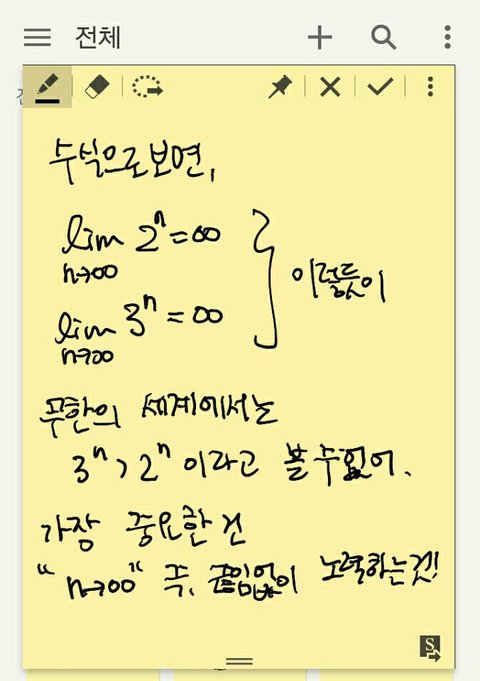 전체
수식으로보면,
lim 2ⁿ=∞
n→∞
lim 3ⁿ=∞
n→∞
이렇듯이
무한의 세계에서는
3ⁿ>2ⁿ 이라고 볼 수 없어.
가장 중요한 건
“n→∞” 즉, 끊임없이 노력하는것!
S